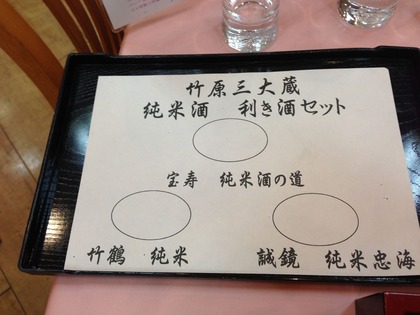 竹原三大蔵
純米酒 利き酒セット
宝寿 純米酒の道
竹鶴 純米
誠鏡 純米忠海